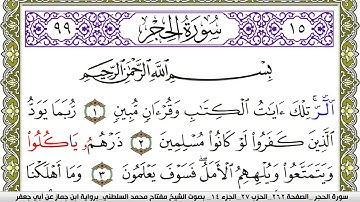 ٩٩ سُورَةُ الحِجْرِ ١٥
بِسْمِ اللَّهِ الرَّحْمَٰنِ الرَّحِيمِ
الٓر۪ۚ تِلْكَ ءَايَٰتُ الْكِتَٰبِ وَقُرْءَانٍ مُّبِينٍ ١ رُّبَمَا يَوَدُّ
الَّذِينَ كَفَرُوا لَوْ كَانُوا مُسْلِمِينَ ٢ ذَرْهُمُۥ يَاكُلُوا
وَيَتَمَتَّعُوا وَيُلْهِهِمُ الْأَمَلُ فَسَوْفَ يَعْلَمُونَ ٣ وَمَا أَهْلَكْنَا
سورة الحجر _ الصفحة ٢٦٢ _ الحزب ٢٧ _ الجزء ١٤ _ بصوت الشيخ مفتاح محمد السلطني _ برواية ابن جماز عن أبي جعفر